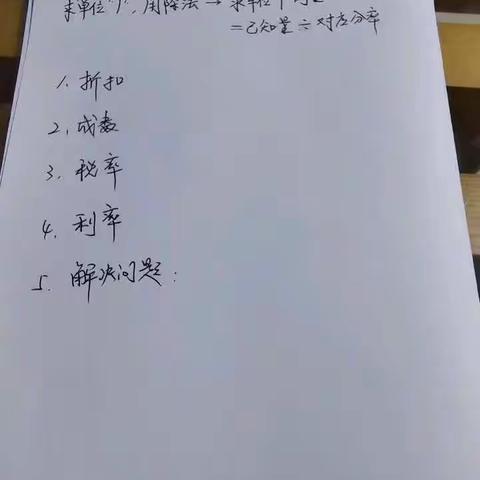 求单位"1",用除法 → 求单位"1"的量
=已知量÷对应分率
1. 折扣
2. 成数
3. 税率
4. 利率
5. 解决问题: